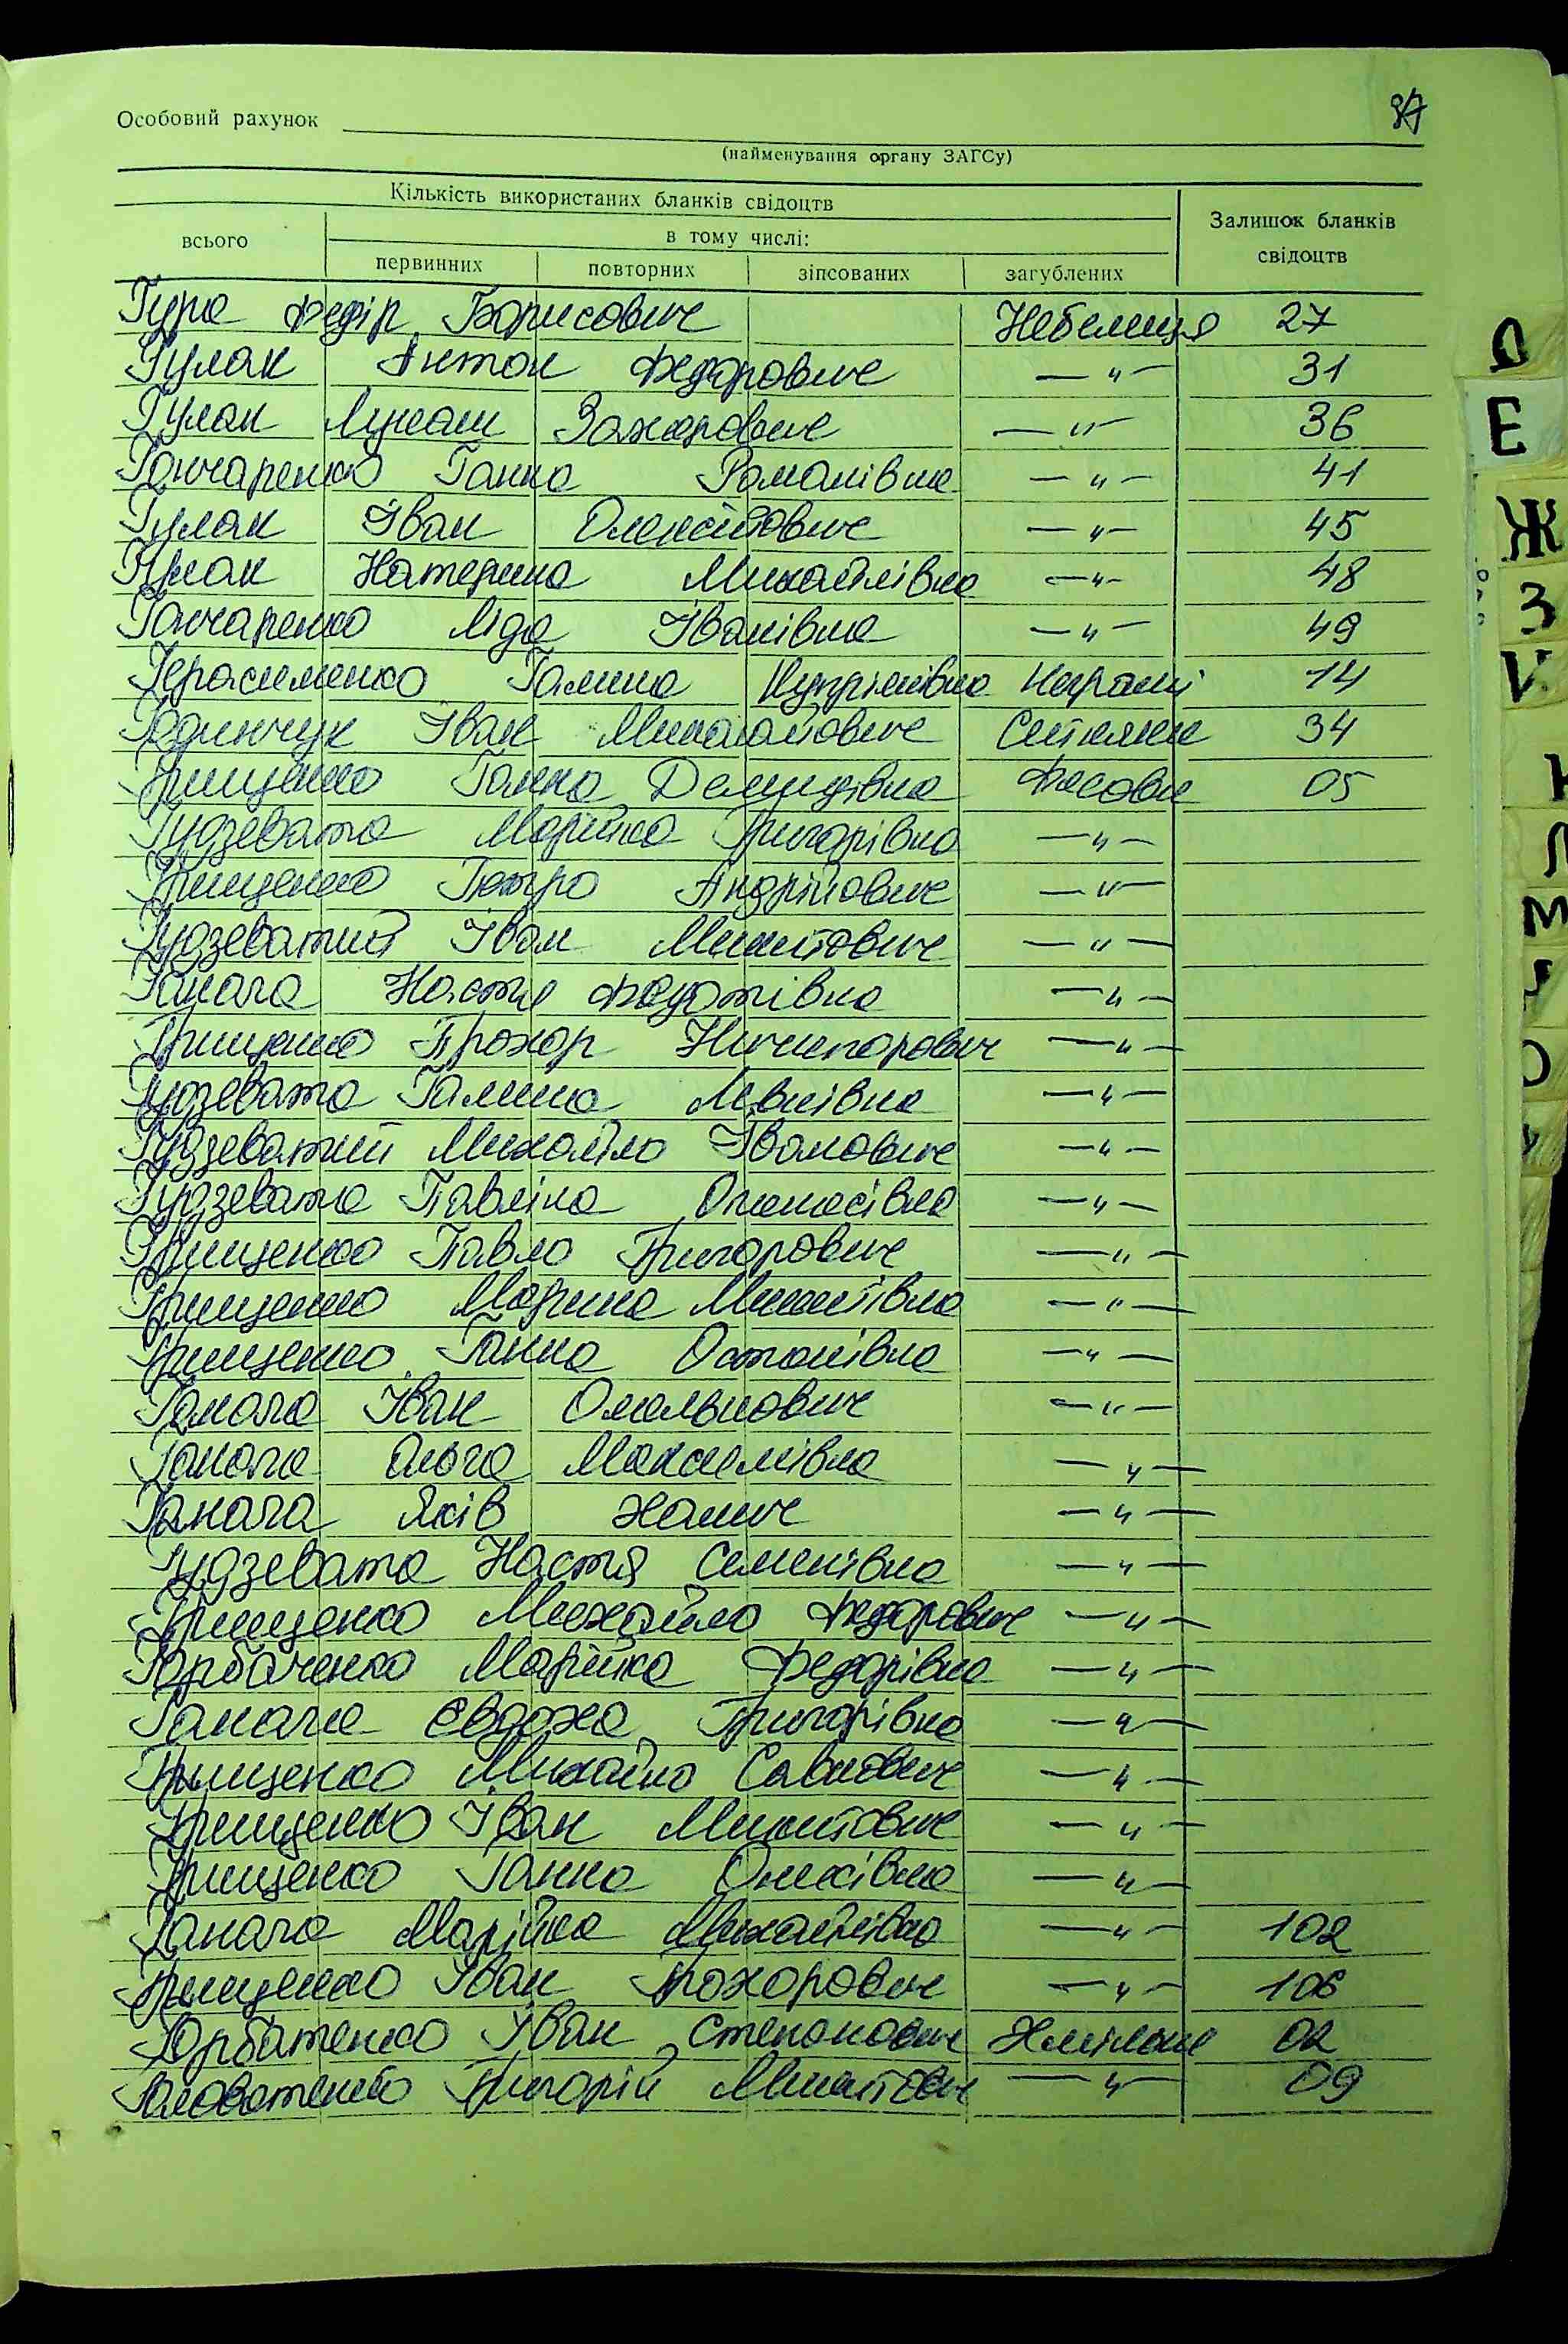 Особовий рахунок
87
(найменування органу ЗАГСу)
Кількість використаних бланків свідоцтв
Залишок бланків свідоцтв
всього
в тому числі:
первинних повторних зіпсованих загублених
Гура Федір Борисович Небелиця 27
Гулак Антон Федорович — " — 31
Гулак Лукаш Захарович — " — 36
Гончаренко Ганна Романівна — " — 41
Гулак Іван Олексійович — " — 45
Гулак Катерина Михайлівна — " — 48
Гончаренко Ліда Іванівна — " — 49
Герасименко Галина Купріянівна 14
Іван 34
Грищенко Ганна Демидівна Фасова 05
Гудзевата Марійка Григорівна — " —
Грищенко Петро Андрійович — " —
Гудзеватий Іван Микитович — " —
Ганага Настя Федотівна — " —
Грищенко Прохор Ничипорович — " —
Гудзевата Галина Левківна — " —
Гудзеватий Михайло Іванович — " —
Гудзевата Павліна Опанасівна — " —
Грищенко Павло Григорович — " —
Грищенко Марина Микитівна — " —
Грищенко Ганна Остапівна — " —
Ганага Іван Омелькович — " —
Ганага Ольга Максимівна — " —
Ганага Яків — " —
Гудзевата Настя Семенівна — " —
Грищенко Михайло Федорович — " —
Горбаченко Марійка Федорівна — " —
Ганага Євдоха Григорівна — " —
Грищенко Михайло Савкович — " —
Грищенко Іван Микитович — " —
Грищенко Ганна — " —
Ганага Марійка Михайлівна — " — 102
Грищенко Іван Прохорович — " — 106
Горбатенко Іван Степанович 02
Григорій Микитович — " — 09
Д
Е
Ж
З
Л
М